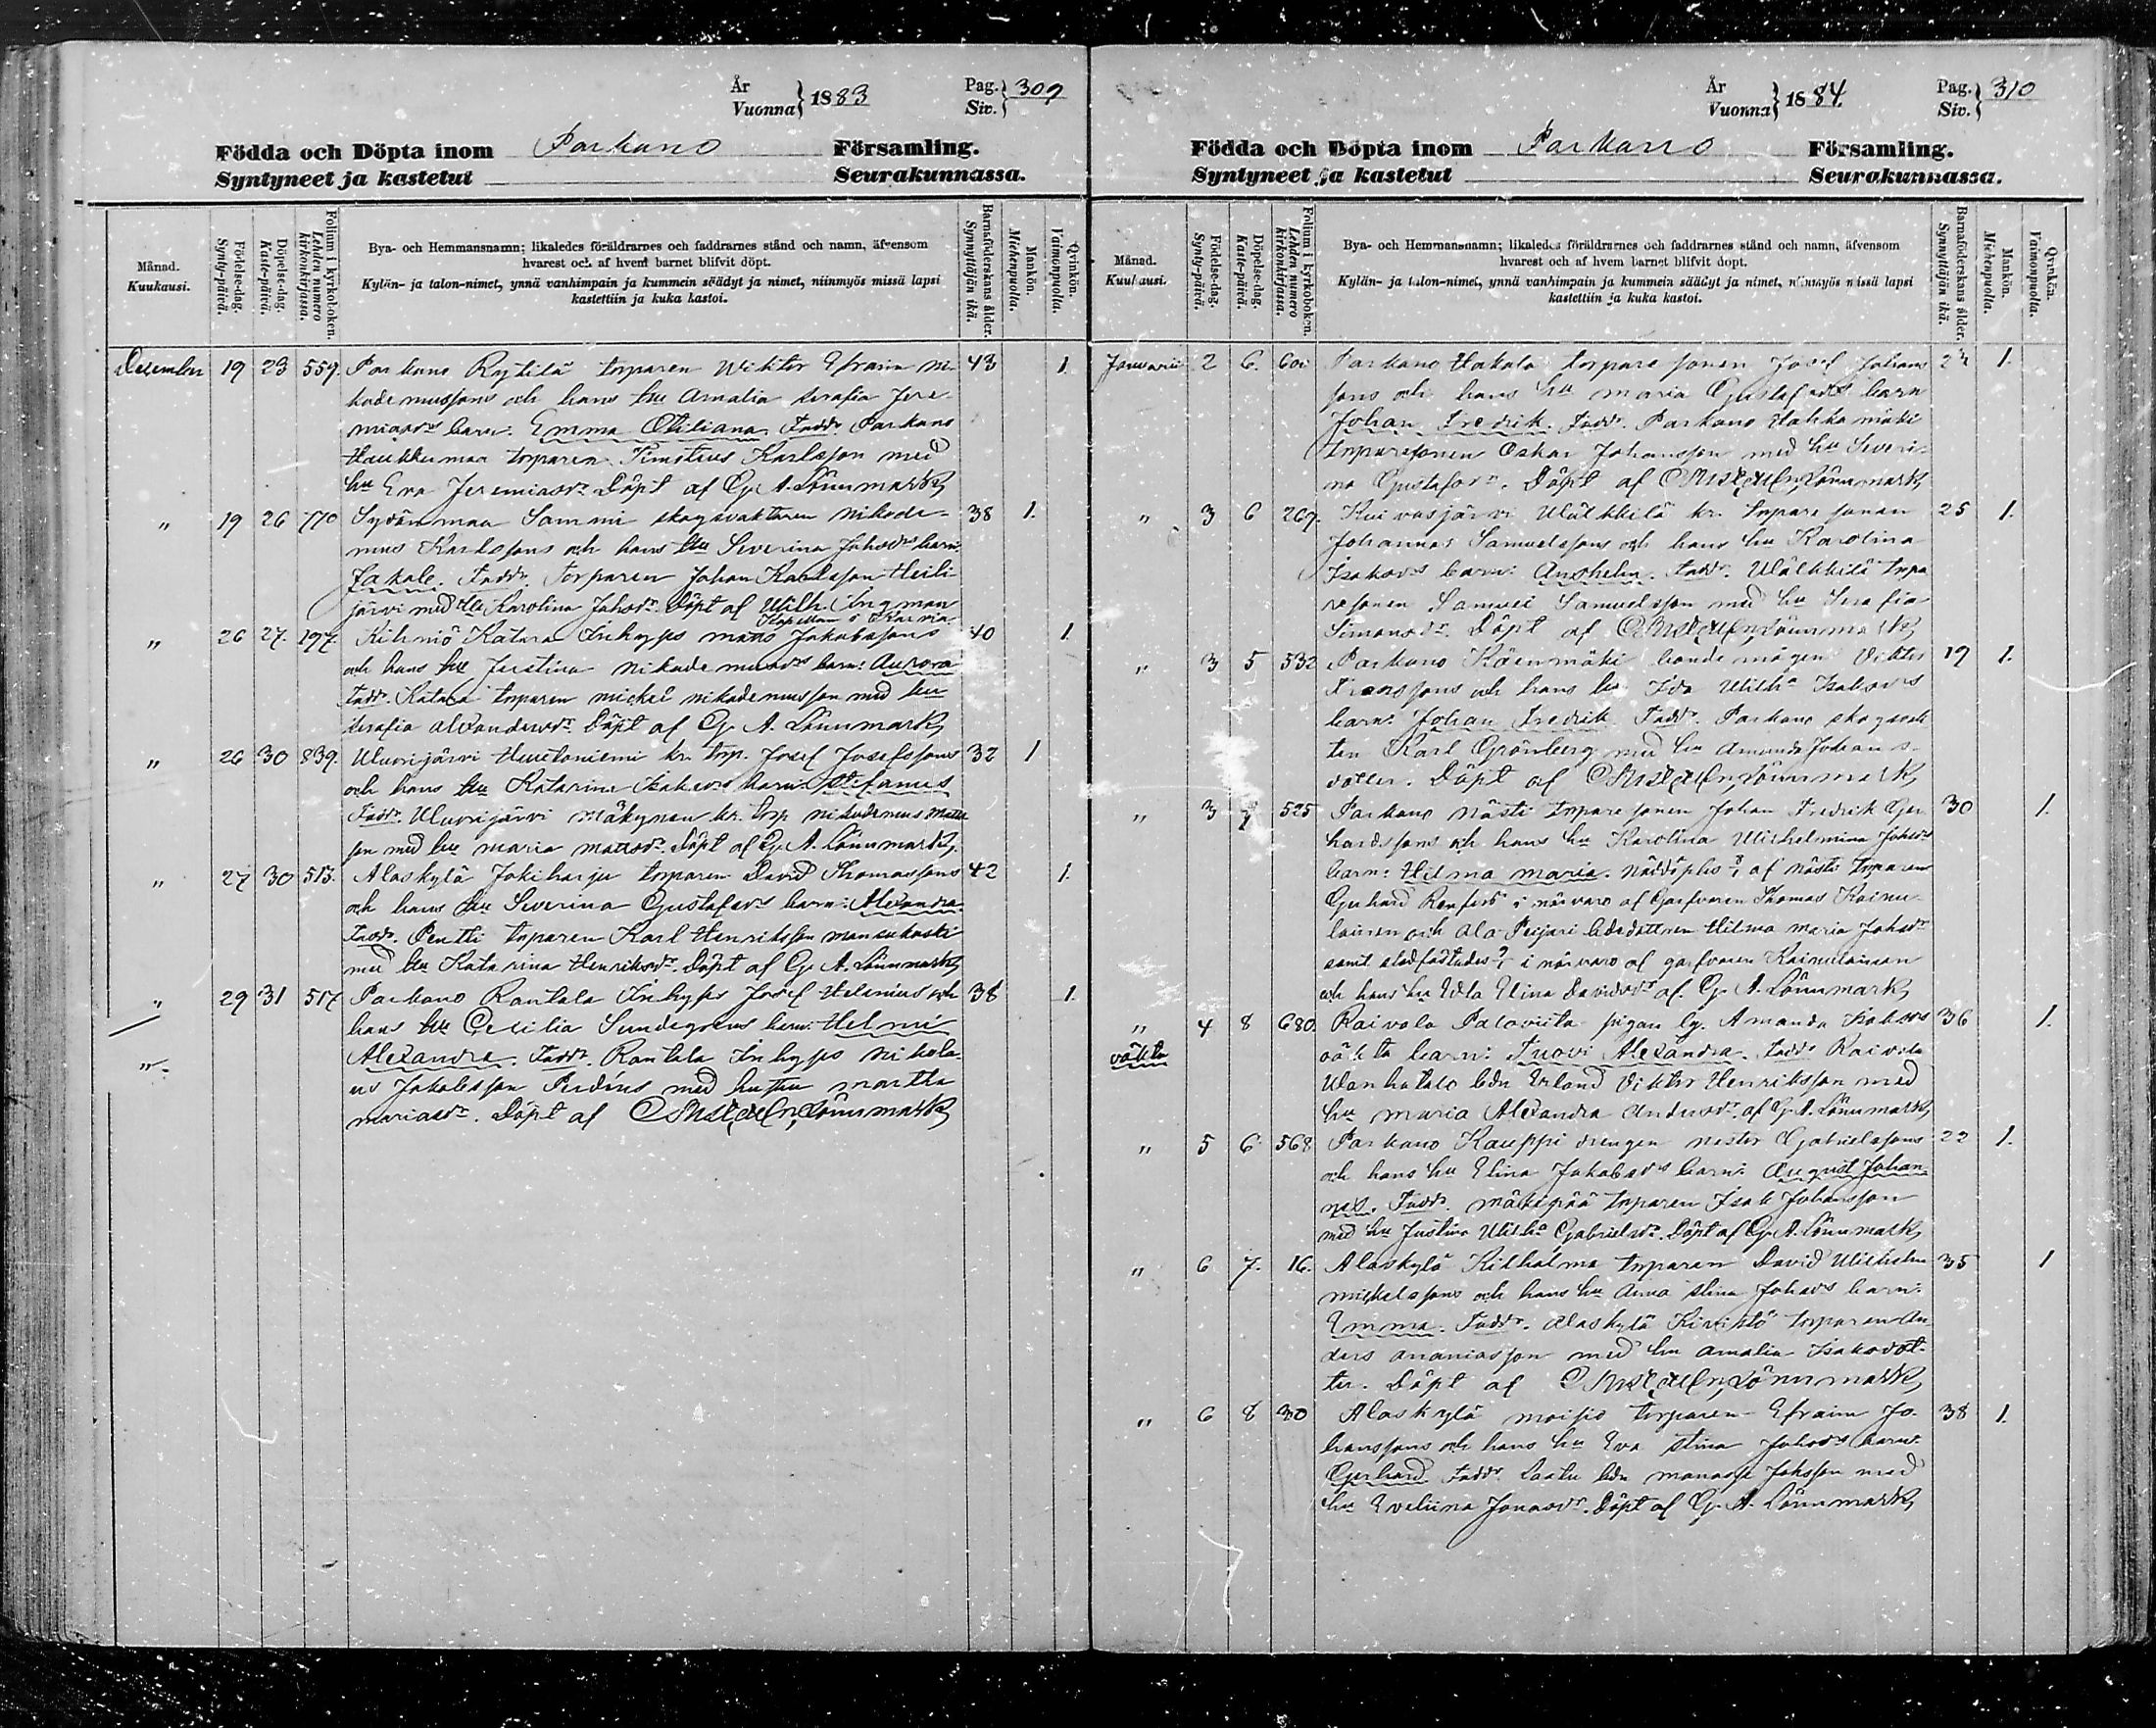 År
Vuonna } 1883
Pag.
Siv. } 309
Födda och Döpta inom Parkano Församling.
Syntyneet ja kastetut Seurakunnassa.
Månad.
Kuukausi.
Födelse-dag.
Synty-päivä.
Döpelse-dag.
Kaste-päivä.
Folium i kyrkoboken.
Lehden numero kirkonkirjassa.
Bya- och Hemmansnamn; likaledes föräldrarnes och faddrarnes stånd och namn, äfvensom
hvarest och af hvem barnet blifvit döpt.
Kylän- ja talon-nimet, ynnä vanhimpain ja kummein säädyt ja nimet, niinmyös missä lapsi
kastettiin ja kuka kastoi.
Barnaföderskans ålder.
Synnyttäjän ikä.
Mankön.
Miehenpuolta.
Qvinkön.
Vaimonpuolta.
December 19 23 559. Parkano Rytilä torparen Wiktor Efraim Ni- 43 1.
kodemussons och hans hu Amalia Serafia Jere-
miasdrs barn: Emma Otiliana. Faddr. Parkano
Haukkumaa torparen Timoteus Karlsson med
hu Eva Jeremiasdr. Döpt af G. A. Lönnmark,
" 19 26 770 Sydänmaa Sammi skogsvaktaren Nikode- 38 1.
mus Karlssons och hans hu Severina Johsdrs barn:
Zakale. Faddr. Torparen Johan Karlsson Heili-
järvi med hu Karolina Johsdr. Döpt af Wilh. Ingman
Kapellan i
" 26 27. 197. Kihniö Katara Inhyses Mats Jakobssons 40 1.
och hans hu Justina Nikodemusdrs barn: Aurora
Faddr. Katara torparen Mickel Nikodemusson med hu
Serafia Alexandersdr. Döpt af G. A. Lönnmark,
" 26 30 839. Wuorijärvi Huutoniemi kr. torp. Josef Josefssons 32 1
och hans hu Katarina Isaksdrs barn Stefanus
Faddr. Wuorijärvi Mäkynen kr. torp Nikodemus Mats
son med hu Maria Matsdr. Döpt af G. A. Lönnmark,
" 27 30 513. Alaskylä Jokiharju torparen David Thomassons 42 1.
och hans hu Severina Gustafsdrs barn: Alexandra.
Faddr. Pentti torparen Karl Henriksson Mansukoski
med hu Katarina Henriksdr. Döpt af G. A. Lönnmark,
" 29 31 517 Parkano Rantala Inhyses Josef Helenius och 38 1.
hans hu Cecilia Sundegrens barn: Helmi
Alexandra. Faddr. Rantala Inhyses Nikola-
us Jakobsson Perdius med hustru Martha
Mariasdr. Döpt af Gust. Adolf Lönnmark,
År
Vuonna } 1884.
Pag.
Siv. } 310
Födda och Döpta inom Parkano Församling.
Syntyneet ja kastetut Seurakunnassa.
Månad.
Kuukausi.
Födelse-dag.
Synty-päivä.
Döpelse-dag.
Kaste-päivä.
Folium i kyrkoboken.
Lehden numero kirkonkirjassa.
Bya- och Hemmansnamn; likaledes föräldrarnes och faddrarnes stånd och namn, äfvensom
hvarest och af hvem barnet blifvit döpt.
Kylän- ja talon-nimet, ynnä vanhimpain ja kummein säädyt ja nimet, niinmyös missä lapsi
kastettiin ja kuka kastoi.
Barnaföderskans ålder.
Synnyttäjän ikä.
Mankön.
Miehenpuolta.
Qvinkön.
Vaimonpuolta.
Januarii 2 6. Parkano Hakala torparesonen Josef Johans 1.
sons och hans hu Maria Gustafsdrs barn
Johan Fredrik. Faddr. Parkano Hakkamäki
torparesonen Oskar Johansson med hu Severi-
na Gustafsdr. Döpt af Gust. Adolf Lönnmark,
" 3 6 267. Kuivasjärvi Wälkkilä kr. torparesonen 25 1.
Johannes Samuelssons och hans hu Karolina
Isaksdrs barn: Anshelm. Faddr. Wälkkilä torpa
resonen Samuel Samuelsson med hu Serafia
Simonsdr. Döpt af Gust. Adolf Lönnmark,
" 3 5 532 Parkano Käenmäki bondemågen Viktor 19 1.
Franssons och hans hu Ida Wilha Isaksdrs
barn: Johan Fredrik Faddr. Parkano
Karl Grönberg med hu Amanda Johans-
dotter. Döpt af Gust. Adolf Lönnmark,
" 3 7 525 Parkano Nästi torparesonen Johan Fredrik Ger- 30 1.
hardssons och hans hu Karolina Wilhelmina Johsdrs
barn: Hilma Maria. Nöddöptes af Nästi torparen
Gerhard Renfors i närvaro af garfvaren Thomas Kainu-
lainen och Ala-Peijari bdedottren Hilma Maria Johsdr
samt stadfästades i närvaro af garfvaren Kainulainen
och hans hu Edla Elina Davidsdr af G. A. Lönnmark,
" 4 8 680. Raivala Palovista pigan lg. Amanda Isaksdrs 36 1.
oäkta
oäkta barn: Tuovi Alexandra. Faddr Raivala
Wanhatalo bdn Erland Viktor Henriksson med
hu Maria Alexandra Andersdr. af G. A. Lönnmark,
" 5 6 568 Parkano Kauppi drengen Nestor Gabrielssons 22 1.
och hans hu Elina Jakobsdrs barn: August Johan-
nes. Faddr. Mäkipää torparen Isak Johansson
med hu Justina Wilha Gabrielsdr. Döpt af G. A. Lönnmark,
" 6 7. 16. Alaskylä Kilhalma torparen David Wilhelm 35 1
Mickelssons och hans hu Anna Stina Johsdrs barn:
Emma. Faddr. Alaskylä Kivistö torparen An-
ders Ananiasson med hu Amalia Isaksdot-
ter. Döpt af Gust. Adolf Lönnmark,
" 6 8 30 Alaskylä Moisio torparen Efraim Jo- 38 1.
hanssons och hans hu Eva Stina Johsdrs barn:
Gerhard. Faddr. Laatu bdn Manasse Johsson med
hu Eveliina Jonasdr. Döpt af G. A. Lönnmark,